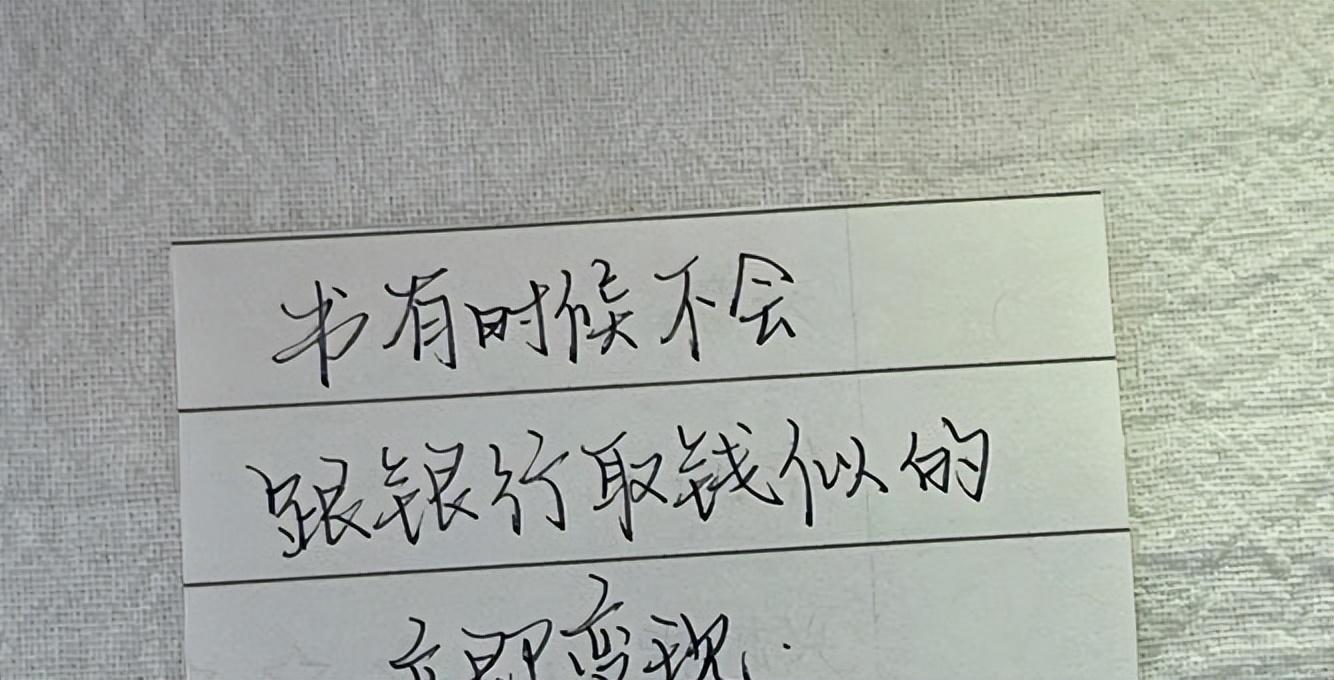 书有时候不会
跟银行取钱似的
立即变现.